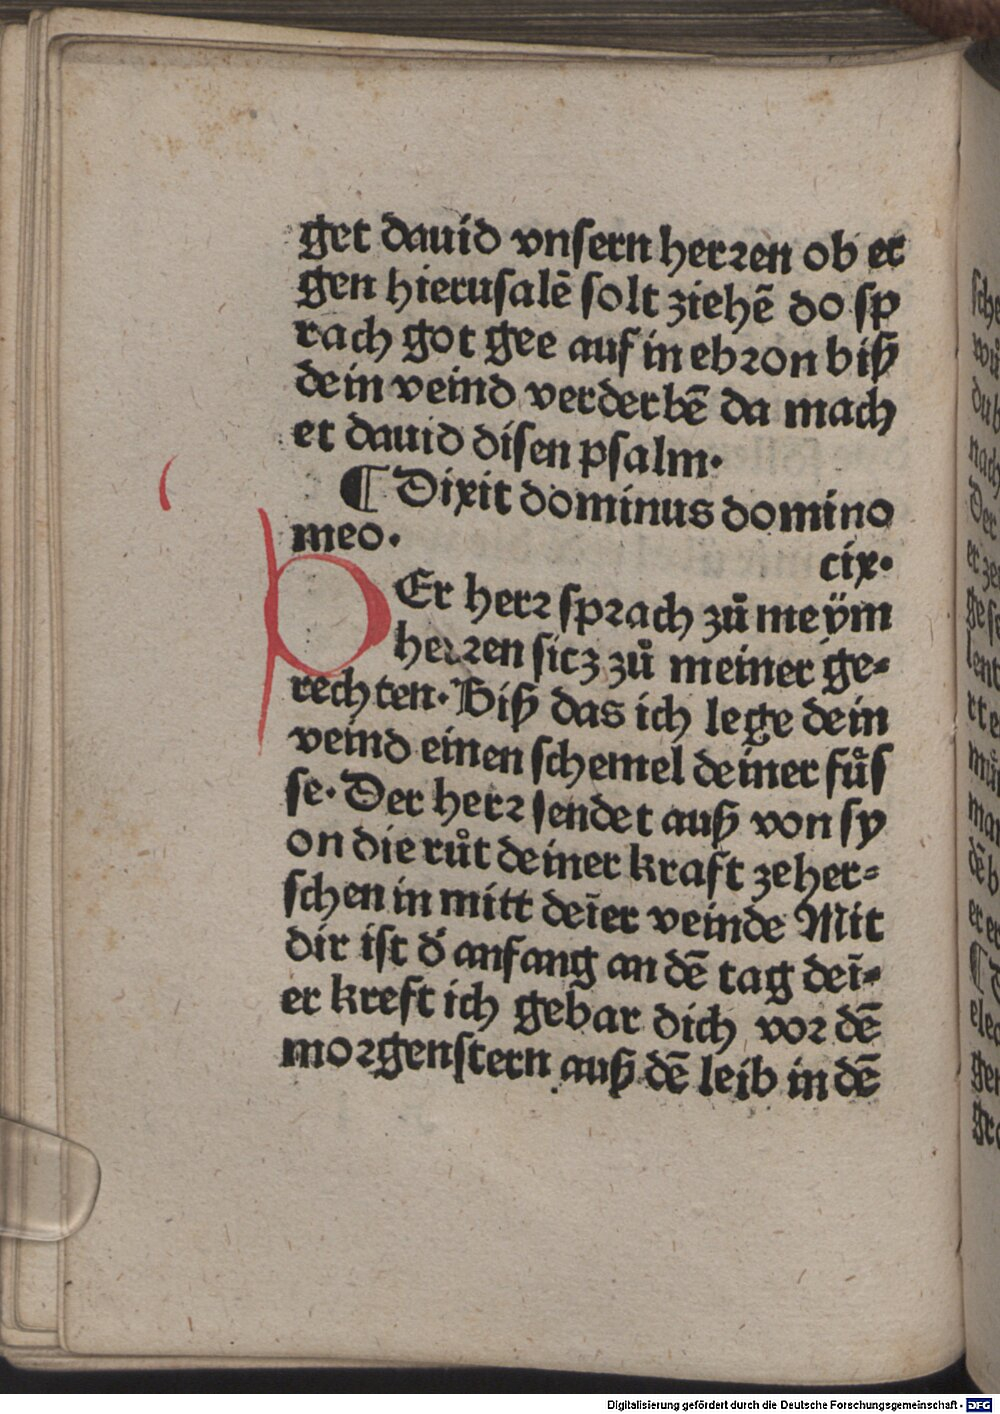 get dauid vnsern herren ob er
gen hierusalē solt ziehē do sp
rach got gee auf in ebron biß
dein veind verderbē da mach
et dauid disen psalm.
¶ Dixit dominus domino
meo.
cix.
Er herr sprach zů meÿm
herren sitz zů meiner ge=
rechten. Biß das ich lege dein
veind einen schemel deiner fůs
se. Der herr sendet auß von sy
on die růt deiner kraft zeher=
schen in mitt deīer veinde Mit
dir ist d̉ anfang an dē tag deī=
er kreft ich gebar dich vor dē
morgenstern auß dē leib in dē
Digitalisierung gefördert durch die Deutsche Forschungsgemeinschaft - DFG